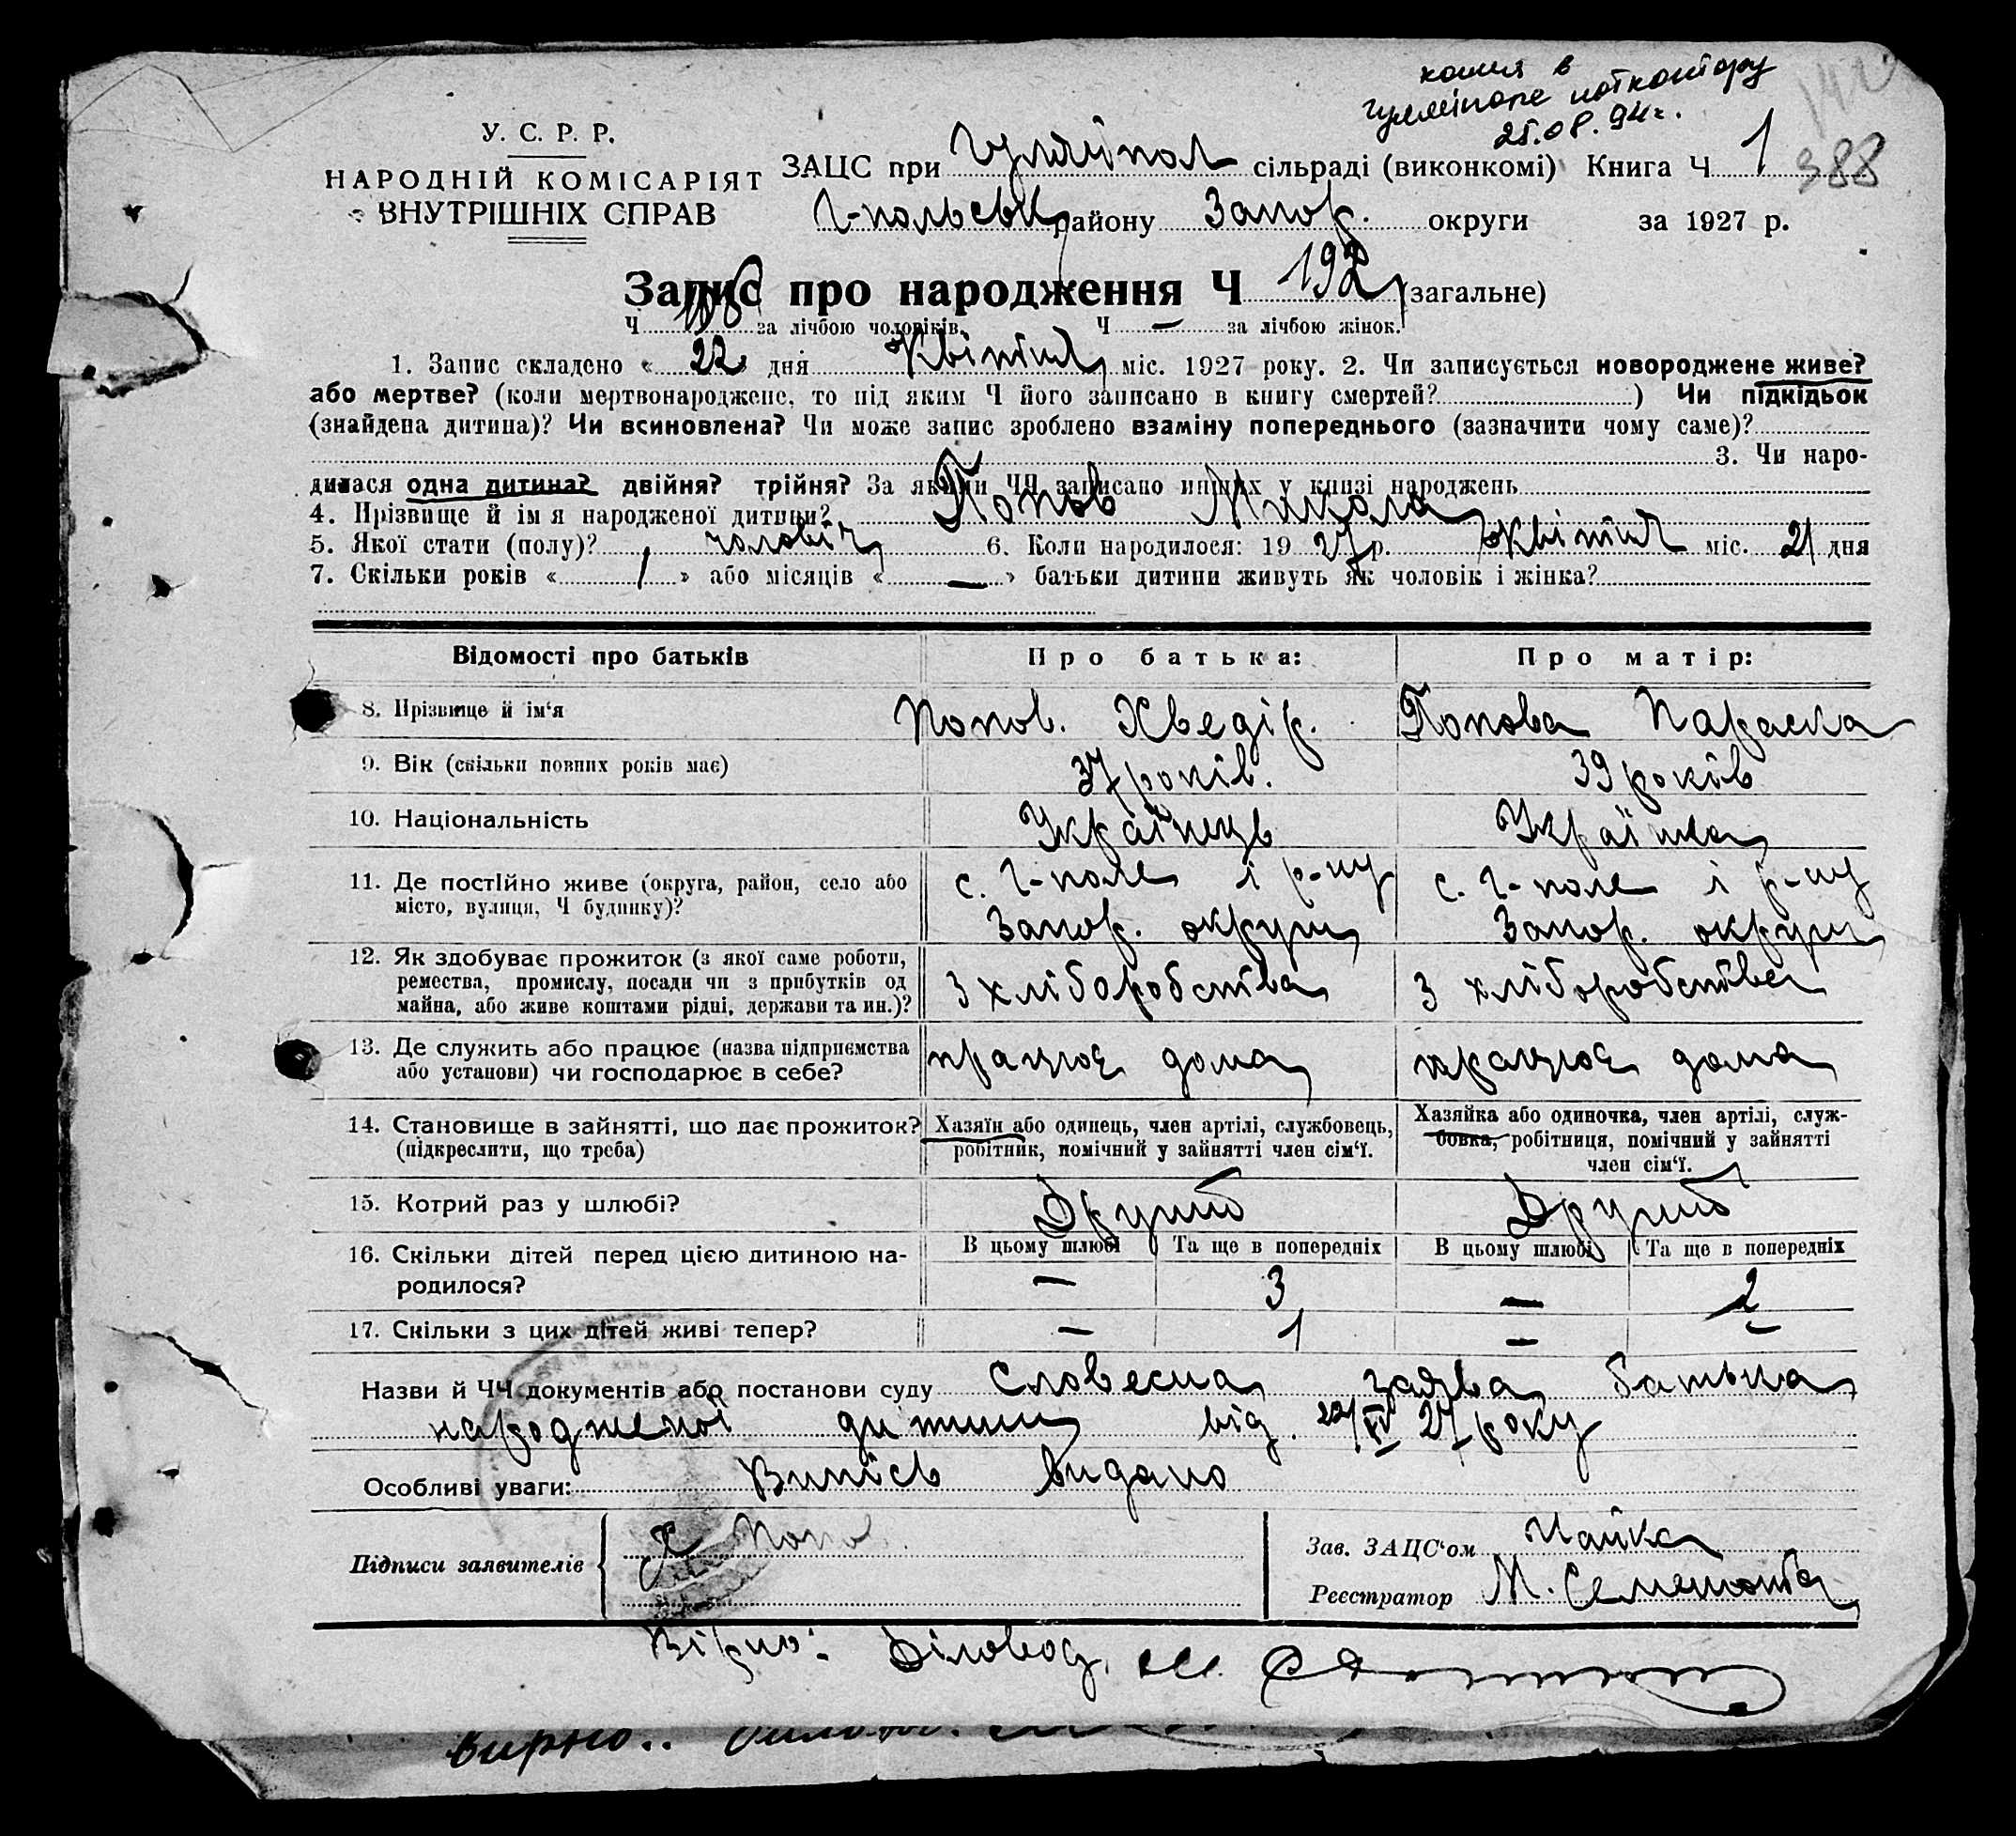 копия в
Гуляйполе нотконтору
25.08.94г.
388
У. С. Р. Р.
НАРОДНІЙ КОМІСАРІЯТ
ВНУТРІШНІХ СПРАВ
ЗАЦС при Гуляйпол сільраді (виконкомі) Книга Ч 1
Г-польськ району Запор. округи за 1927 р.
Запис про народження Ч 192 (загальне)
Ч 108 за лічбою чоловіків. Ч — за лічбою жінок.
1. Запис складено « 22 » дня Квітня міс. 1927 року. 2. Чи записується новороджене живе?
або мертве? (коли мертвонароджене, то під яким Ч його записано в книгу смертей? ) Чи підкідьок
(знайдена дитина)? Чи всиновлена? Чи може запис зроблено взаміну попереднього (зазначити чому саме)?
3. Чи наро-
дилася одна дитина? двійня? трійня? За якими ЧЧ записано инших у книзі народжень
4. Прізвище й ім я народженої дитини? Попов Микола
5. Якої стати (полу)? чоловіч 6. Коли народилося: 19 27 р. Квітня міс. 21 дня
7. Скільки років « 1 » або місяців « — » батьки дитини живуть як чоловік і жінка?
Відомості про батьків Про батька: Про матір:
8. Прізвище й ім‘я Попов. Хведір. Попова Параска
9. Вік (скільки повних років має) 37 років. 39 років
10. Національність Українець Українка
11. Де постійно живе (округа, район, село або с. Г-поле і р-ну с. Г-поле і р-ну
місто, вулиця, Ч будинку)? Запор. округи Запор. округи
12. Як здобуває прожиток (з якої саме роботи,
ремества, промислу, посади чи з прибутків од з хліборобства з хліборобства
майна, або живе коштами рідні, держави та ин.)?
13. Де служить або працює (назва підприємства працює дома працює дома
або установи) чи господарює в себе?
14. Становище в зайнятті, що дає прожиток? Хазяїн або одинець, член артілі, службовець, Хазяйка або одиночка, член артілі, служ-
(підкреслити, що треба) робітник, помічний у зайнятті член сім‘ї. бовка, робітниця, помічний у зайнятті
член сім‘ї.
15. Котрий раз у шлюбі? Другий Другий
16. Скільки дітей перед цією дитиною на- В цьому шлюбі Та ще в попередніх В цьому шлюбі Та ще в попередніх
родилося? — 3 — 2
17. Скільки з цих дітей живі тепер? — 1 — —
Назви й ЧЧ документів або постанови суду Словесна заява батька
народженої дитини від 22/IV 27 року
Особливі уваги: Випісь видано
Підписи заявителів Х Попо
Зав. ЗАЦС‘ом Чайка
Реєстратор М.
Вірно: Діловод.
вирно..